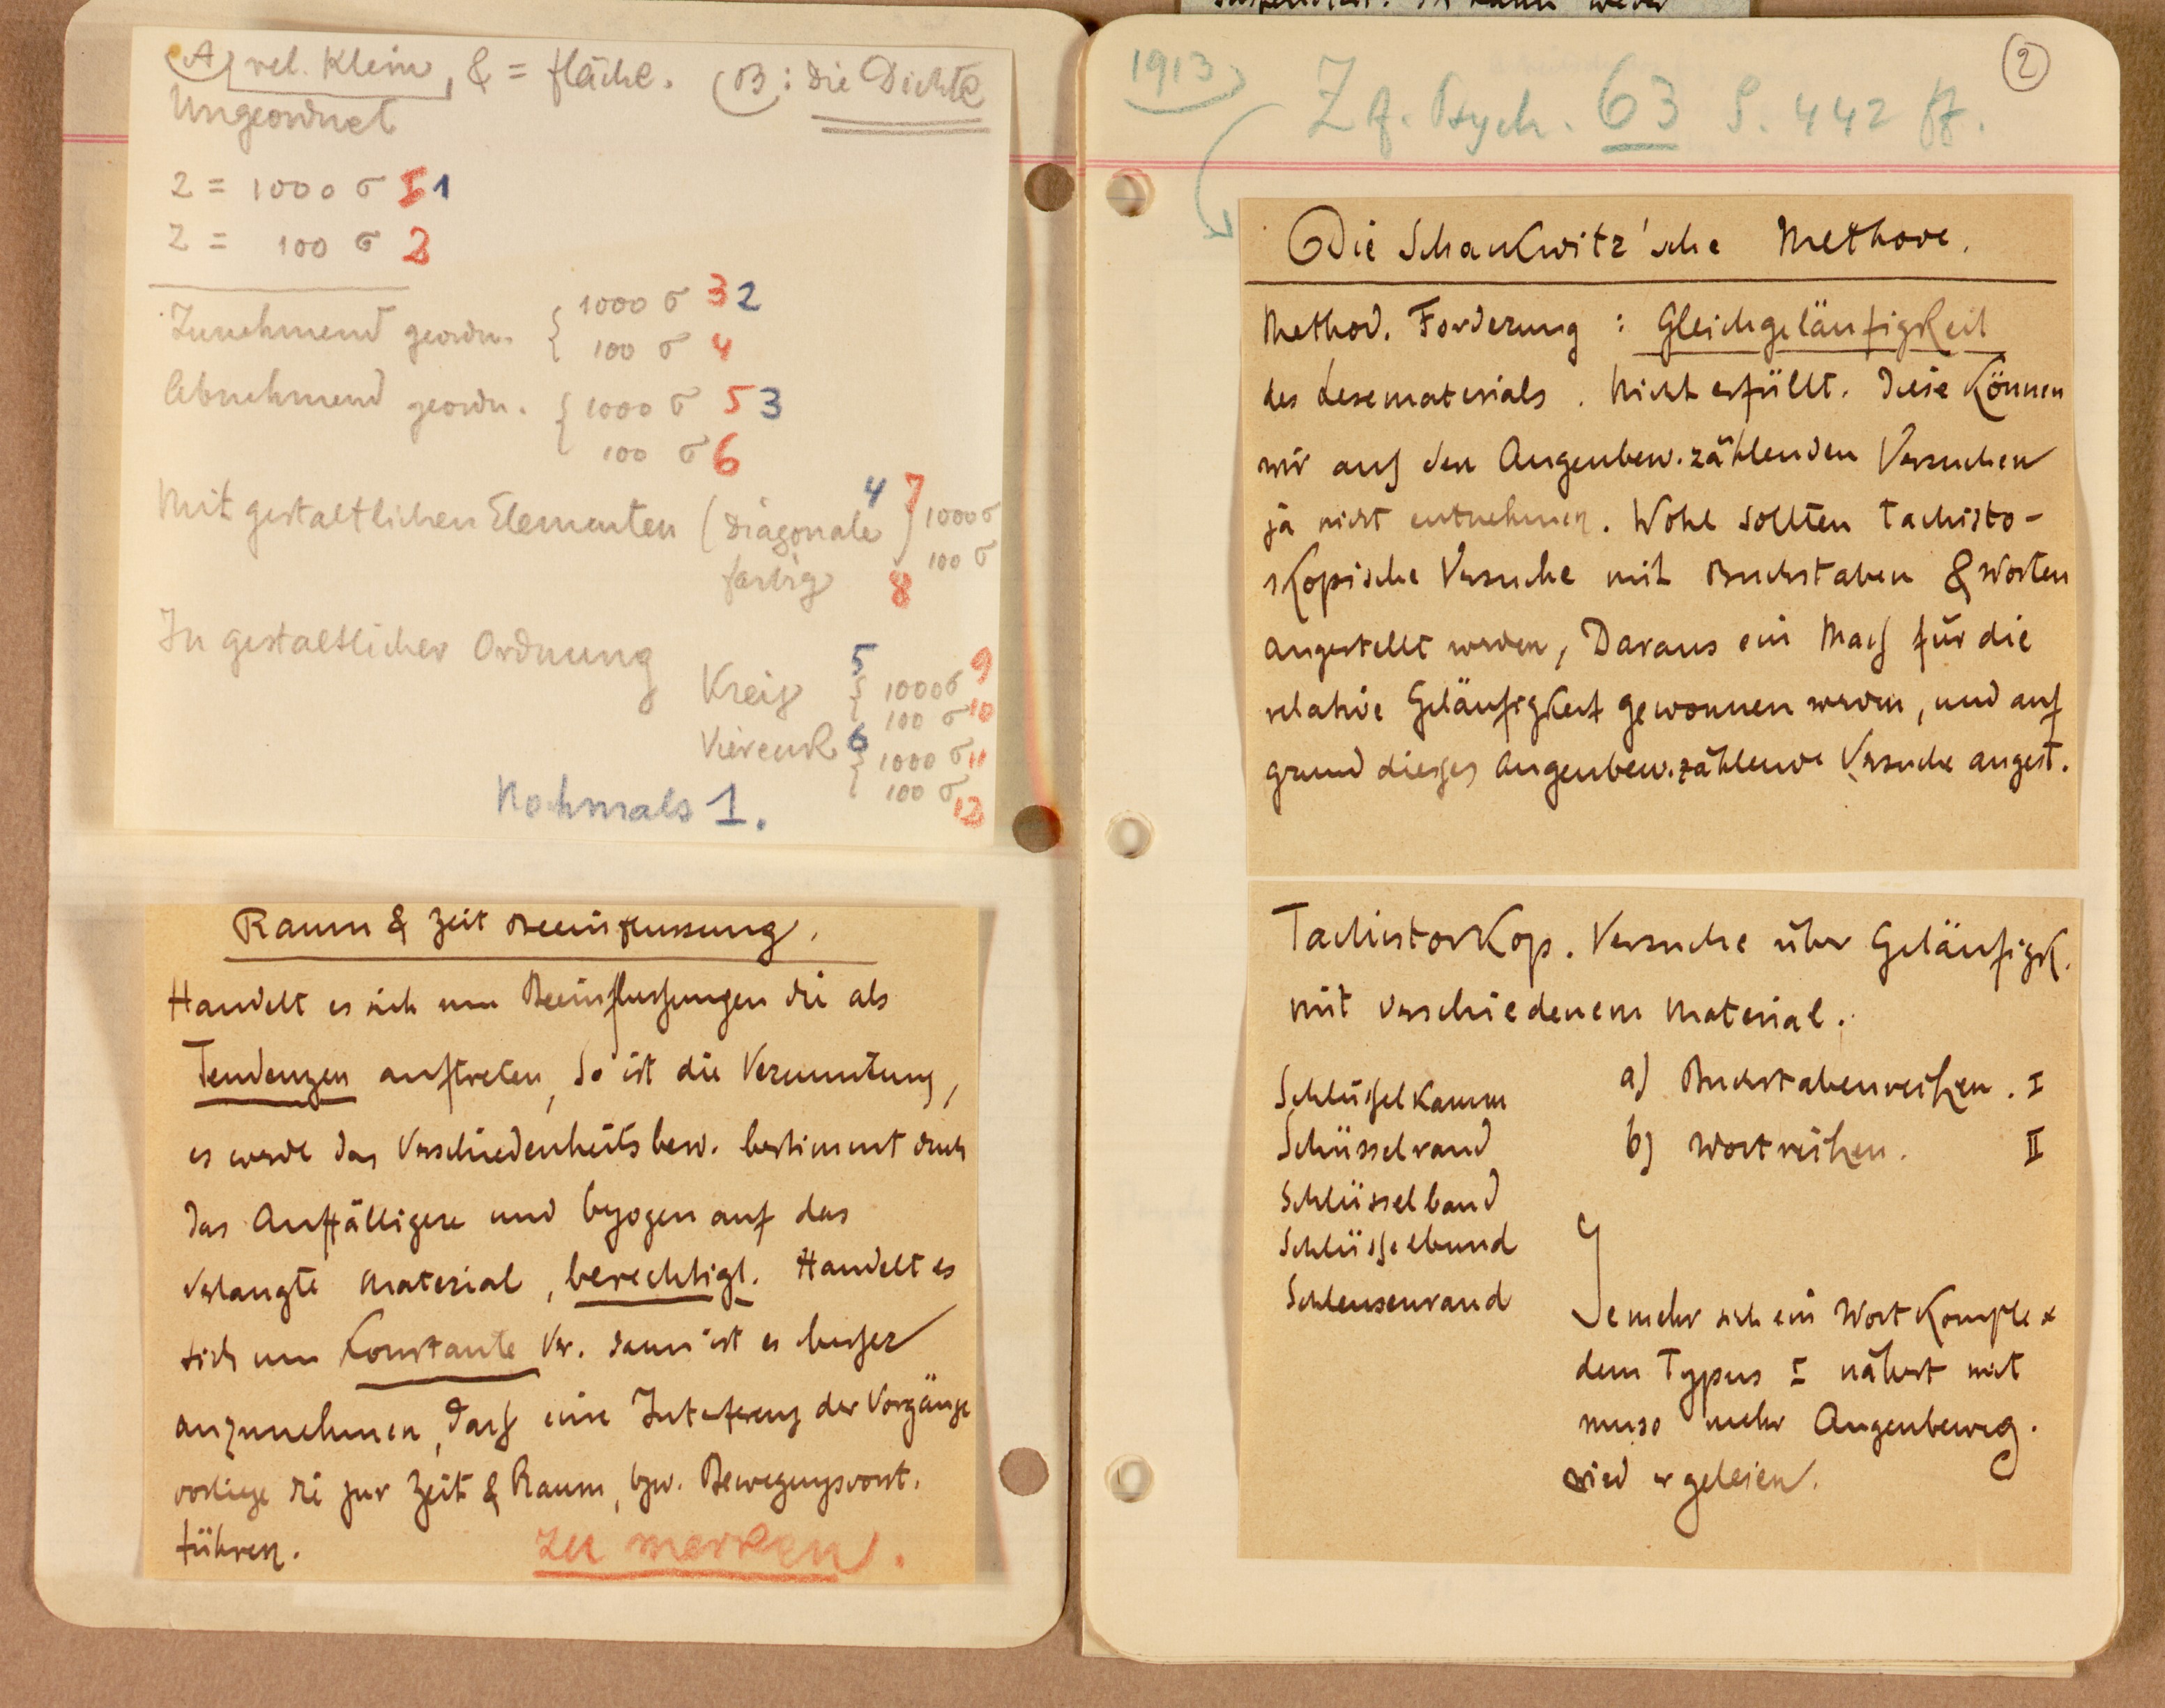 A) rel. Klein, & = Fläche. (B: die Dichte
Ungeordnet
Z = 1000 σ I 1
Z = 100 σ 2
Zunehmend geordn. { 1000 σ 3 2
100 σ 4
Abnehmend geordn. { 1000 σ 5 3
100 σ 6
Mit gestaltlichen Elementen (Diagonale 4 7) 1000 σ
farbig 8 100 σ
In gestaltlicher Ordnung
Kreis 5 { 1000 σ 9
100 σ 10
Viereck 6 { 1000 σ 11
100 σ 12
Nochmals 1.
Raum & Zeit Beeinflussung.
Handelt es sich um Beeinflussungen die als
Tendenzen auftreten, so ist die Vermutung,
es werde das Verschiedenheitsbew. bestimmt durch
das Auffälligere und bezogen auf das
verlangte Material, berechtigt. Handelt es
sich um Konstante Vr. dann ist es besser
anzunehmen, dass eine Interferenz der Vorgänge
vorliege die zur Zeit & Raum, bzw. Bewegungsvorst.
führen. zu merken.
1913
Z f. Psych. 63 S. 442 ff.
2
Die Schankwitz'sche Methode.
Method. Forderung : Gleichgeläufigkeit
des Lesematerials. Nicht erfüllt. Diese können
wir aus den Augenbew. zählenden Versuchen
ja nicht entnehmen. Wohl sollten tachisto-
skopische Versuche mit Buchstaben & Worten
angestellt werden, Daraus ein Mass für die
relative Geläufigkeit gewonnen werden, und auf
grund dieses augenbew. zählende Versuche angest.
Tachistoskop. Versuche über Geläufigk.
mit verschiedenem Material.
a) Buchstabenreihen. I
b) Wortreihen. II
Schlüsselkamm
Schüsselrand
Schlüsselband
Schlüsselbund
Schleusenrand
Je mehr sich ein Wort Komplex
dem Typus I nähert mit
umso mehr Augenbeweg.
wird er gelesen.